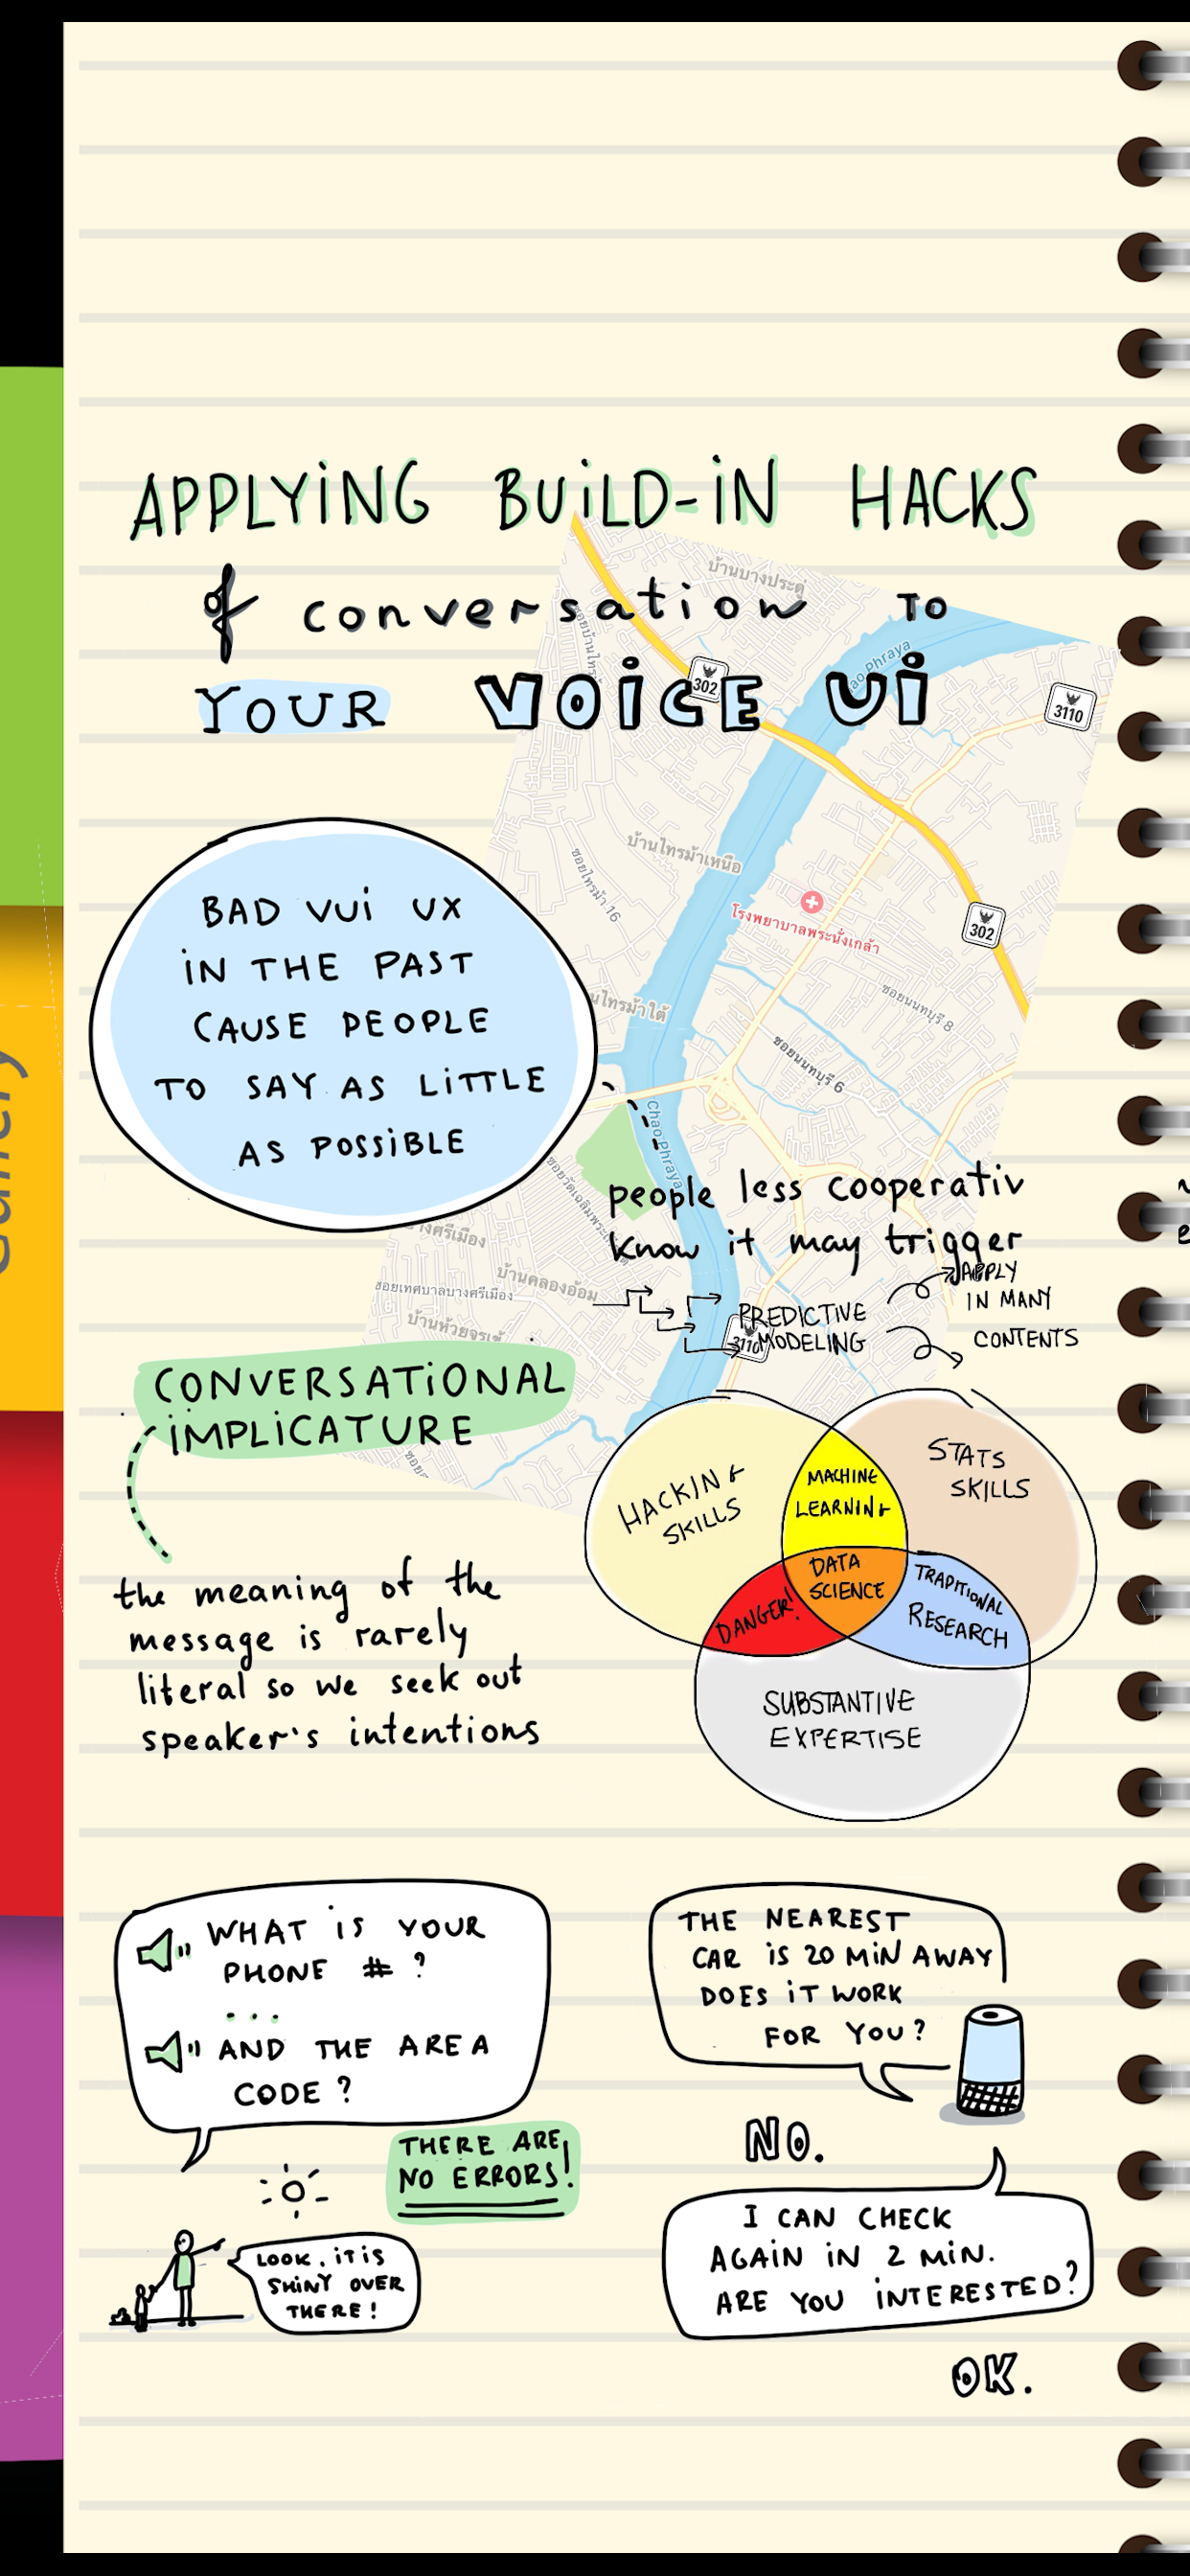 APPLYING BUILD-IN HACKS
of conversation TO
YOUR VOICE UI
บ้านบางประดู่
302
3110
Phraya
บ้านไทรม้าเหนือ
ซอยไทรม้า 16
โรงพยาบาลพระนั่งเกล้า
302
ซอยนนทบุรี 8
ซอยนนทบุรี 6
Chao Phraya
BAD VUI UX
IN THE PAST
CAUSE PEOPLE
TO SAY AS LITTLE
AS POSSIBLE
people less cooperativ
know it may trigger
บ้านคลองอ้อม
ซอยเทศบาลบางศรีเมือง
3110
PREDICTIVE
MODELING
APPLY
IN MANY
CONTENTS
CONVERSATIONAL
IMPLICATURE
the meaning of the
message is rarely
literal so we seek out
speaker's intentions
HACKING
SKILLS
MACHINE
LEARNING
STATS
SKILLS
DATA
SCIENCE
DANGER!
TRADITIONAL
RESEARCH
SUBSTANTIVE
EXPERTISE
WHAT IS YOUR
PHONE # ?
...
AND THE AREA
CODE ?
THERE ARE
NO ERRORS!
LOOK, IT IS
SHINY OVER
THERE!
THE NEAREST
CAR IS 20 MIN AWAY
DOES IT WORK
FOR YOU?
NO.
I CAN CHECK
AGAIN IN 2 MIN.
ARE YOU INTERESTED?
OK.